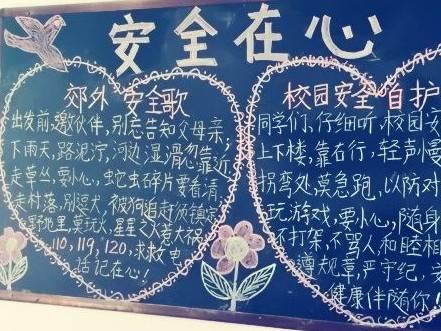 安全在心
郊外 安全歌
出发前,邀伙伴,别忘告知父母亲,
下雨天,路泥泞,河边湿滑勿靠近
走草丛,要小心,蛇虫碎片要看清
走村落,别逗犬,被狗追赶须镇定
野地里,莫玩火,星星之火惹大祸
110,119,120,求救电
话记在心!
校园安全自护
同学们,仔细听,校园安
上下楼,靠右行,轻声慢
拐弯处,莫急跑,以防对
玩游戏,要小心,随身
不打架,不骂人和睦相
遵规章,严守纪,
健康伴随你!